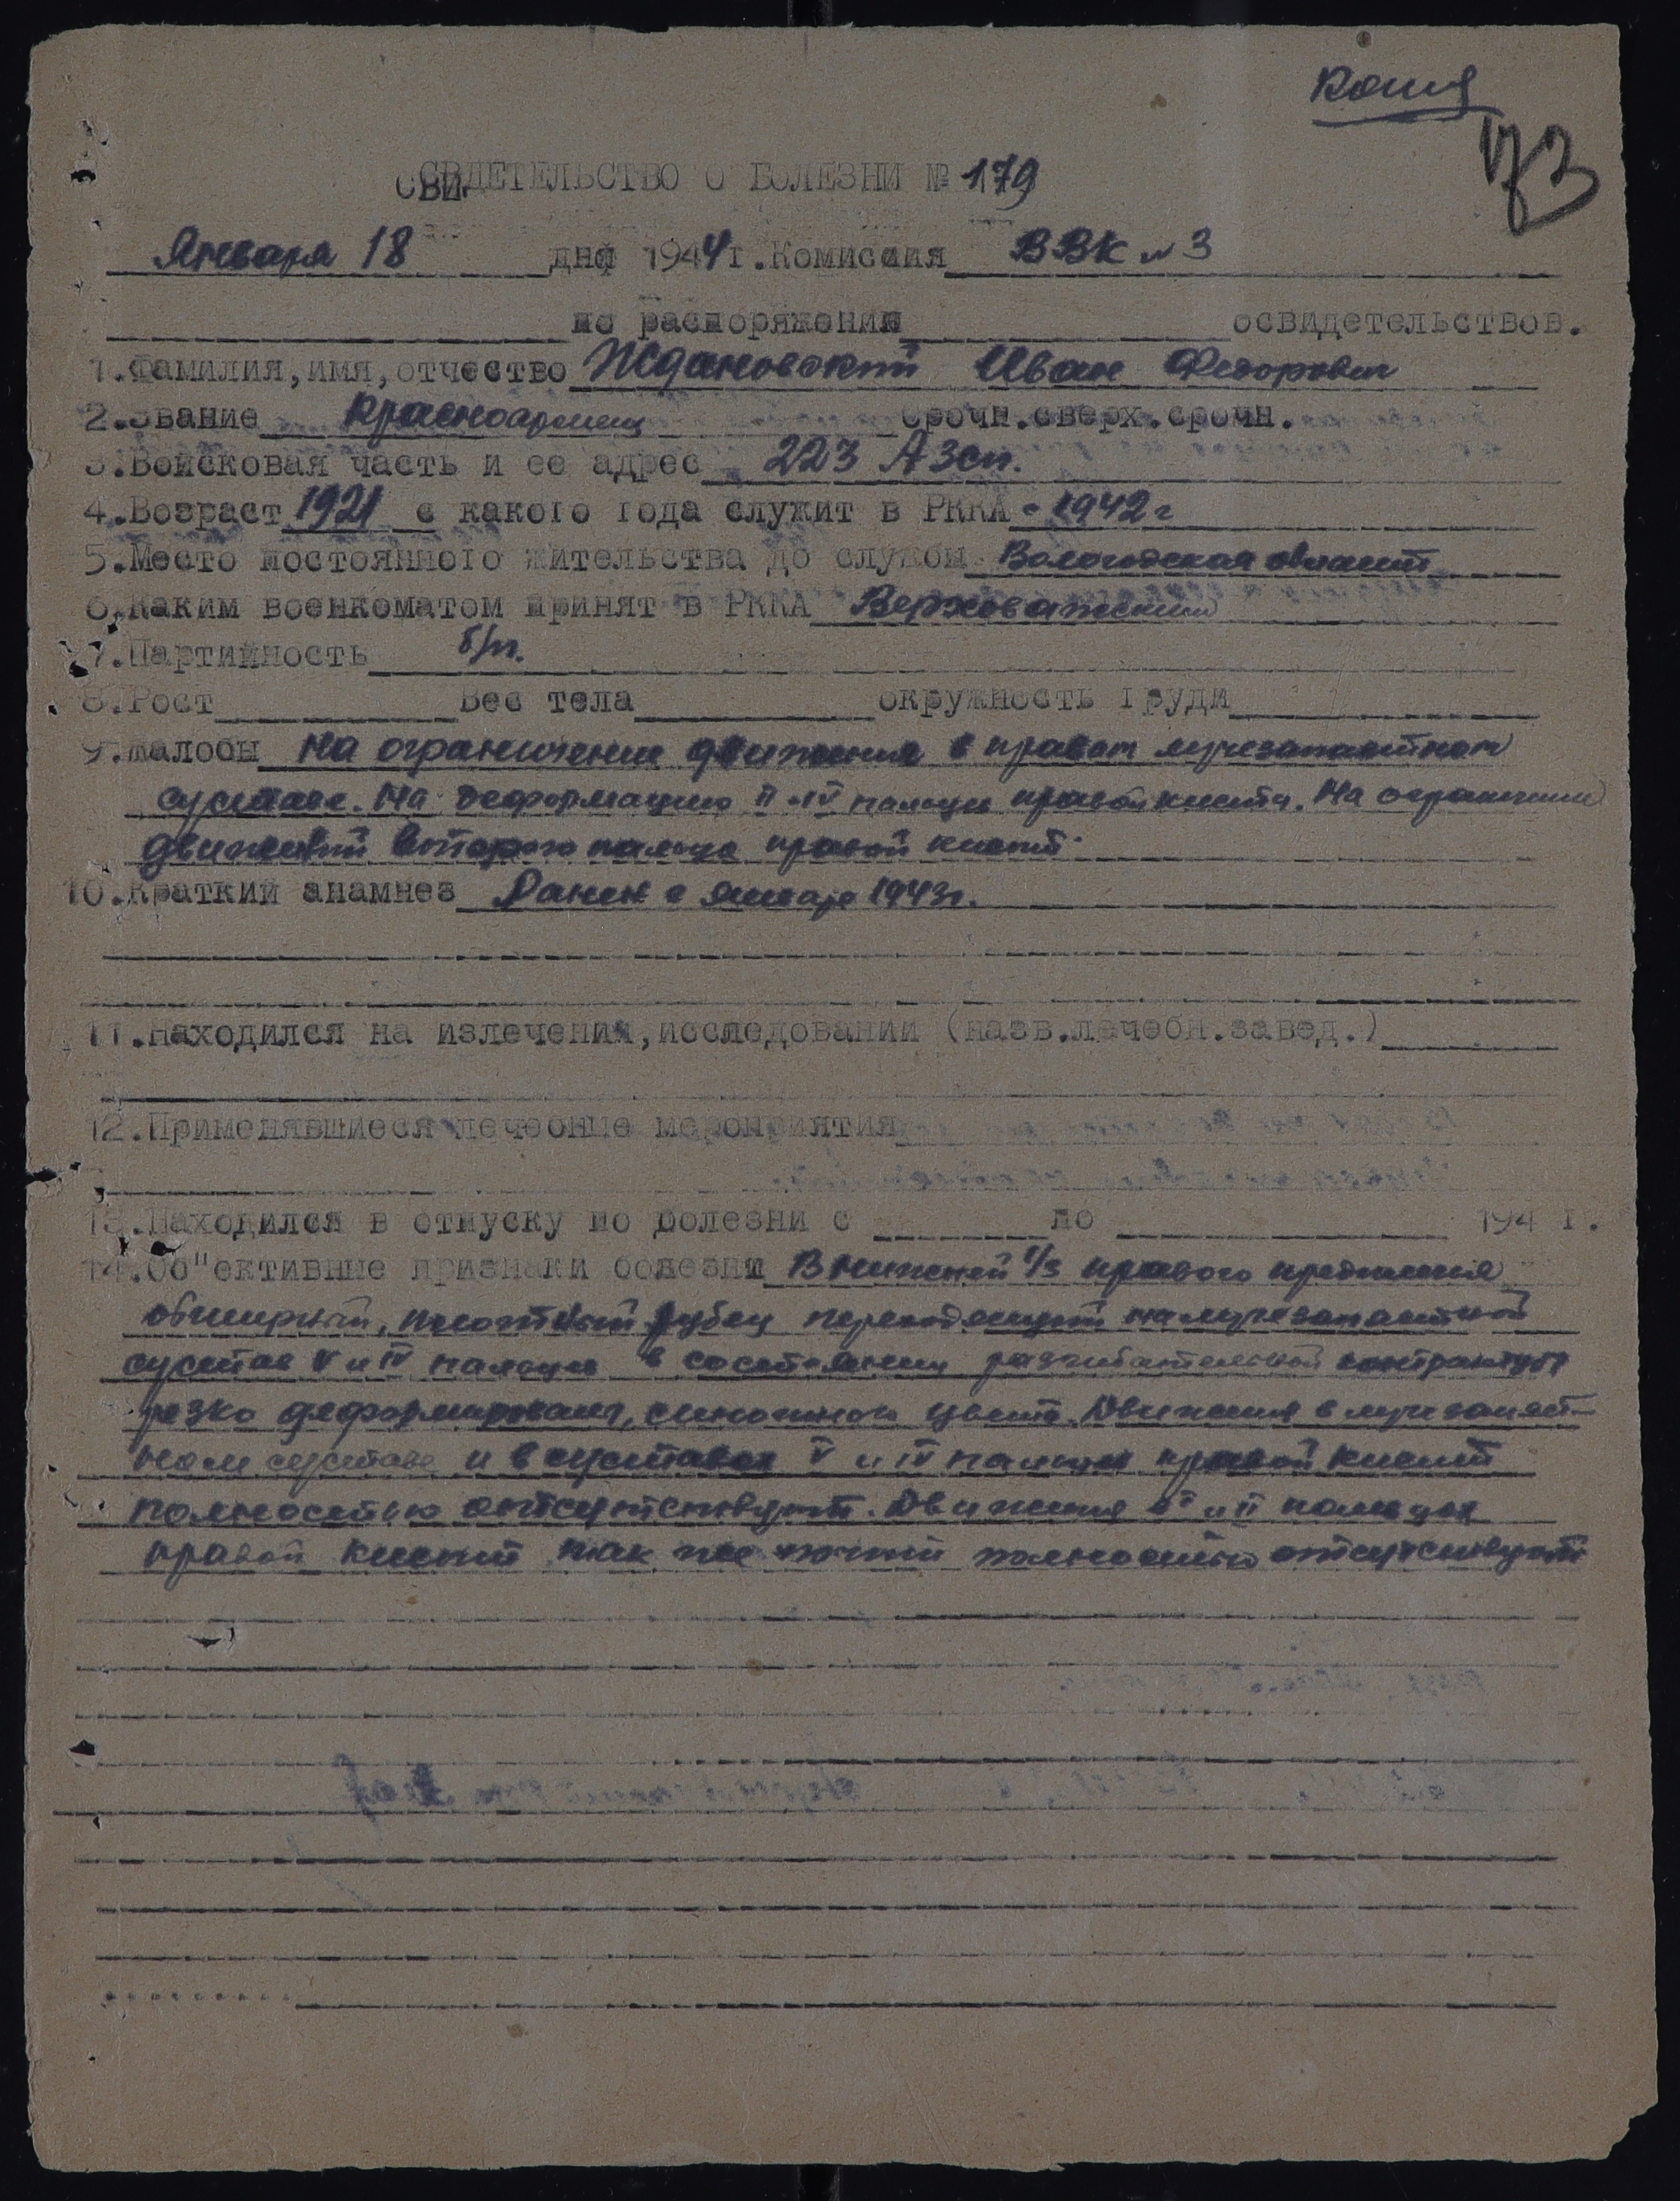 Копия
173
СВИДЕТЕЛЬСТВО О БОЛЕЗНИ № 179
Января 18 дня 1944 г. Комиссия ВВК №3
по распоряжению освидетельствов.
1.Фамилия,имя,отчество Ждановский Иван Федорович
2.Звание Красноармеец Срочн.сверх.срочн.
3.Войсковая часть и ее адрес 223 АЗСП.
4.Возраст 1921 с какого года служит в РККА с 1942 г
5.Место постоянного жительства до службы Вологодская область
6.Каким военкоматом принят в РККА Верховажским
7.Партийность б/п.
8.Рост Вес тела окружность груди
9.Жалобы На ограничение движения в правом лучезапястном
суставе. На деформацию II и IV пальцев правой кисти. На ограничение
движений второго пальца правой кисти.
10.Краткий анамнез Ранен в январе 1943г.
11.Находился на излечении,исследовании (назв.лечебн.завед.)
12.Применявшиеся лечебные мероприятия
13.Находился в отпуску по болезни с по 194 г.
14.Об"ективные признаки болезни В нижней 1/3 правого предплечья
обширный, плотный рубец переходящий на лучезапястный
сустав V и IV пальцы в состоянии разгибательной контрактуры
резко деформированы, синюшного цвета. Движения в лучезапяст-
ном суставе и в суставах V и IV пальцев правой кисти
полностью отсутствуют. Движения в I и II пальцах
правой кисти так же почти полностью отсутствуют